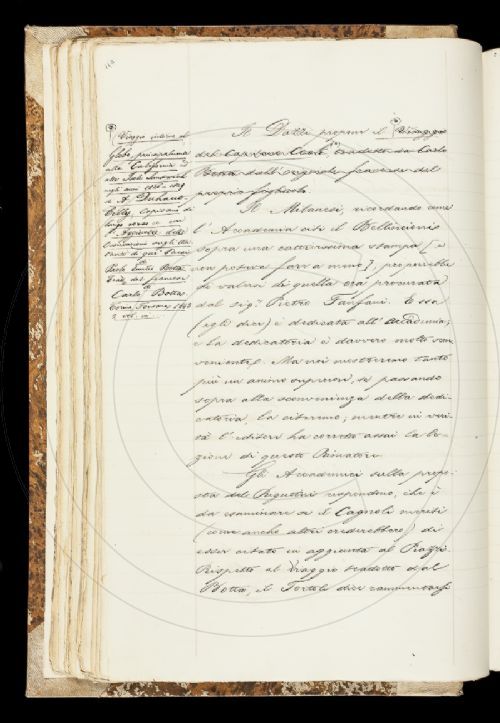 Viaggio intorno al
globo, principalmente
alla California ed
alle Isole Sandwich
negli anni 1826 - 1829
di A. Duhaut-
Cilly, Capitano di
lungo corso
con l'aggiunta delle
osservazioni sugli abi-
tanti di quei Paesi
di Paolo Emilio Botta.
Trad. dal francese
di Carlo Botta.
Torino, 1841
2 vol. in
Il Dalla propone il Viaggio
del Capitano tradotto da Carlo
Botta dall'originale francese del
proprio figliuolo.
Il Milanesi, ricordando come
l'Accademia citi il Bellincioni
sopra una cattivissima stampa (e
non poteva fare a meno), proporrebbe
si valesse di quella ora procurata
dal sig.r Pietro Fanfani. Essa
(egli dice) è dedicata all'Accademia;
e la dedicatoria è davvero molto scon-
veniente. Ma noi mostreremo tanto
più un animo superiore, se passando
sopra alla sconvenienza della dedi-
catoria, la citeremo; mentre in veri-
tà l'editore ha corretto assai la le-
zione di queste Rimatore.
Gli Accademici sulla propo-
sta del Bigazzi rispondono, che è
da esaminare se il Cagnoli meriti
(come anche altri crederebbero) di
esser citato in aggiunta al Piazzi.
Rispetto al Viaggio tradotto dal
Botta, il Tortoli dice rammentarsi